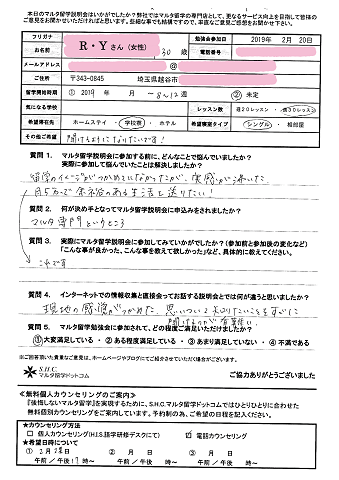 本日のマルタ留学説明会はいかがでしたか?弊社ではマルタ留学の専門店として、更なるサービス向上を目指して皆様の
ご意見をお聞かせいただければと思います。些細な事でも結構ですので、率直なご意見ご感想をお聞かせ下さい。
フリガナ
勉強会参加日 2019年 2月20日
お名前 R・Yさん(女性) 30歳 電話番号
メールアドレス @
ご住所 〒343-0845 埼玉県越谷市
留学開始時期 ① 2019年 月/ 8~12週 ② 未定
気になる学校 レッスン数 週20レッスン・週30レッスン
希望滞在先 ホームステイ・学校寮・ホテル 希望部屋タイプ シングル・相部屋
その他ご希望 聞けるようになりたいです!
質問1. マルタ留学説明会に参加する前に、どんなことで悩んでいましたか?
実際に参加して悩んでいたことは解決しましたか?
留学のイメージがつかめていなかったが、実感が湧いた
月5万で余裕のある生活を送りたい!
質問2. 何が決め手となってマルタ留学説明会に申込みをされましたか?
マルタ専門というところ
質問3. 実際にマルタ留学説明会に参加してみていかがでしたか?(参加前と参加後の変化など)
「こんな事が良かった、こんな事を教えて欲しかった」など、具体的に教えてください。
これです
質問4. インターネットでの情報収集と直接会ってお話する説明会とでは何が違うと思いましたか?
現地の感覚がつかめた、思いついて知りたいことをすぐに
聞けるのが有難い
質問5. マルタ留学勉強会に参加されて、どの程度ご満足いただけましたか?
①大変満足している ・ ②ある程度満足している ・ ③あまり満足していない ・ ④不満である
※ご回答頂いた貴重なご意見は、ホームページやブログにてご紹介させていただく場合がございます。
S.H.C.
マルタ留学ドットコム
ご協力ありがとうございました
≪無料個人カウンセリングのご案内≫
『後悔しないマルタ留学』を実現するために、S.H.C.マルタ留学ドットコムではひとりひとりに合わせた
無料個別カウンセリングをご案内しています。予約制の為、ご希望の日程をご記入ください。
★カウンセリング方法
□ 個人カウンセリング(H.I.S.語学研修デスクにて) ☑ 電話カウンセリング
★希望日時について
① 2月28日 ② 月 日 ③ 月 日
午前/午後17時~ 午前/午後 時~ 午前/午後 時~